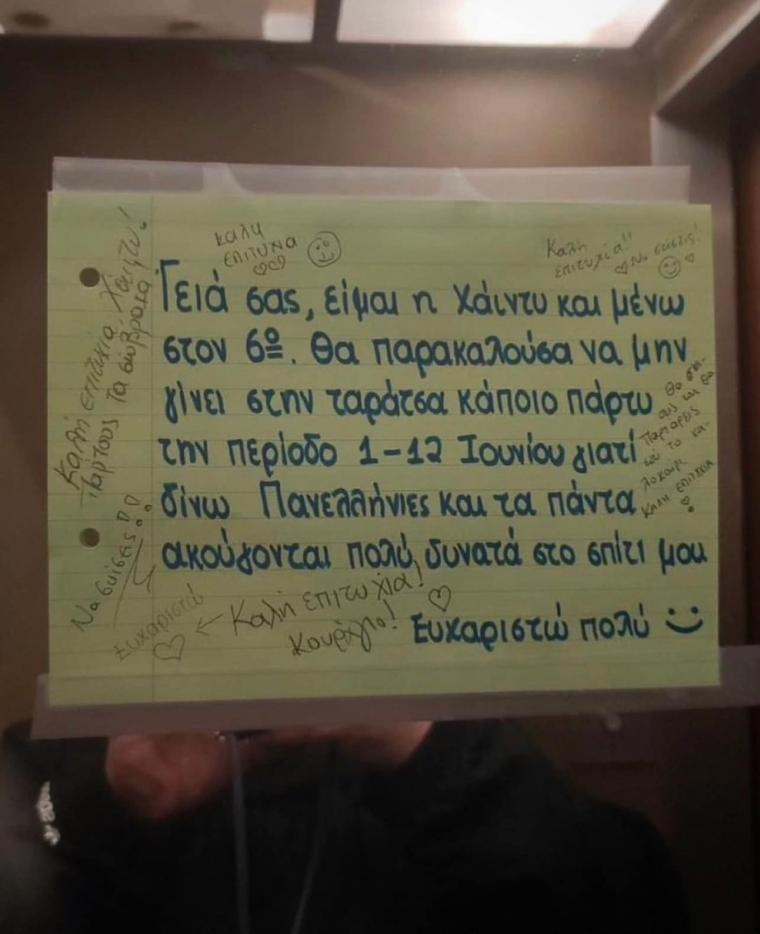 καλη
επιτυχια
Καλή
επιτυχία!!
Να σκίσεις!
Καλή επιτυχία Χάιντυ!
Γειά σας, είμαι η Χάιντυ και μένω
στον 6º. Θα παρακαλούσα να μην
γίνει στην ταράτσα κάποιο πάρτυ
την περίοδο 1-12 Ιουνίου γιατί
δίνω Πανελλήνιες και τα πάντα
ακούγονται πολύ δυνατά στο σπίτι μου
Ευχαριστώ πολύ
παρτάρεις
το κα-
λοκαίρι
ΚΑΛΗ ΕΠΙΤΥΧΙΑ
Να σκίσεις!!
Ευχαριστώ
← Καλή επιτυχία!
Κουράγιο!